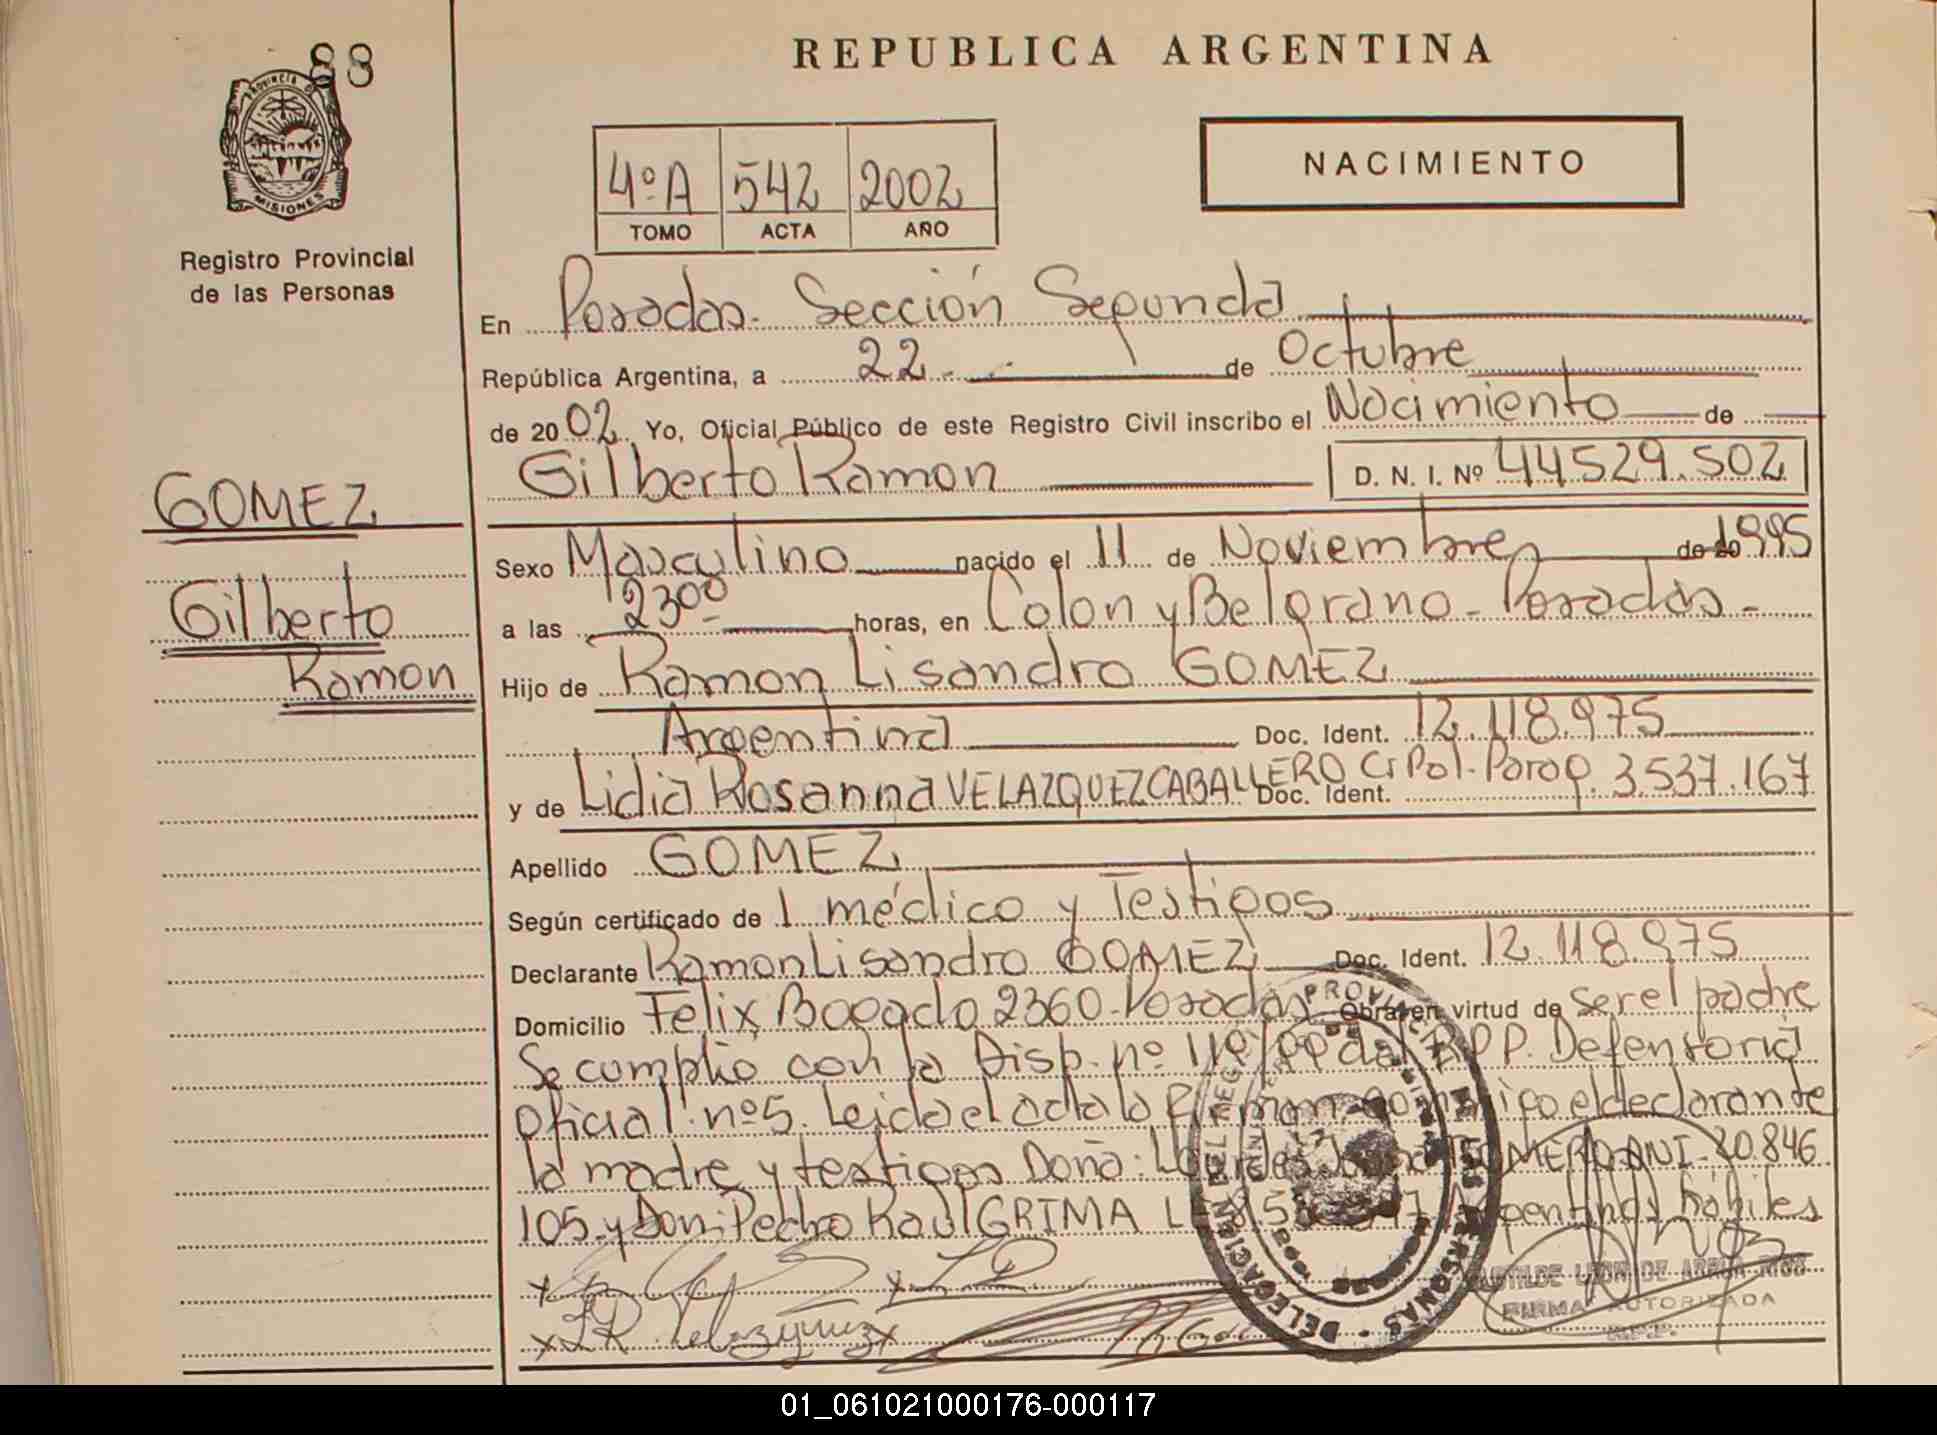 88
REPUBLICA ARGENTINA
PROVINCIA DE
MISIONES
Registro Provincial
de las Personas
4º A 542 2002
TOMO ACTA AÑO
NACIMIENTO
En Posadas. Sección Segunda
República Argentina, a 22 de Octubre
de 2002 Yo, Oficial Público de este Registro Civil inscribo el Nacimiento de
Gilberto Ramon D. N. I. Nº 44529.502
GOMEZ
Gilberto
Ramon
Sexo Masculino nacido el 11 de Noviembre de 20 1995
a las 23⁰⁰ horas, en Colon y Belgrano - Posadas -
Hijo de Ramon Lisandro GOMEZ
Argentina Doc. Ident. 12.118.975
y de Lidia Rosanna VELAZQUEZ CABALLERO Doc. Ident. Ci Pol. Parag. 3.537.167
Apellido GOMEZ
Según certificado de 1 médico y Testigos
Declarante Ramon Lisandro GOMEZ Doc. Ident. 12.118.975
Domicilio Felix Bogado 2360 - Posadas Obra en virtud de ser el padre
Se cumplio con la Disp. nº 110/00 del R.P.P. Defensoria
Oficial nº 5. Leida el acta la Firman conmigo el declarante
la madre y testigos Doña: ROMERO DNI 20.846
105 y Don: Pedro Raul GRIMA LE Argentinos hábiles
L R Velazquez
FIRMA AUTORIZADA
01_061021000176-000117